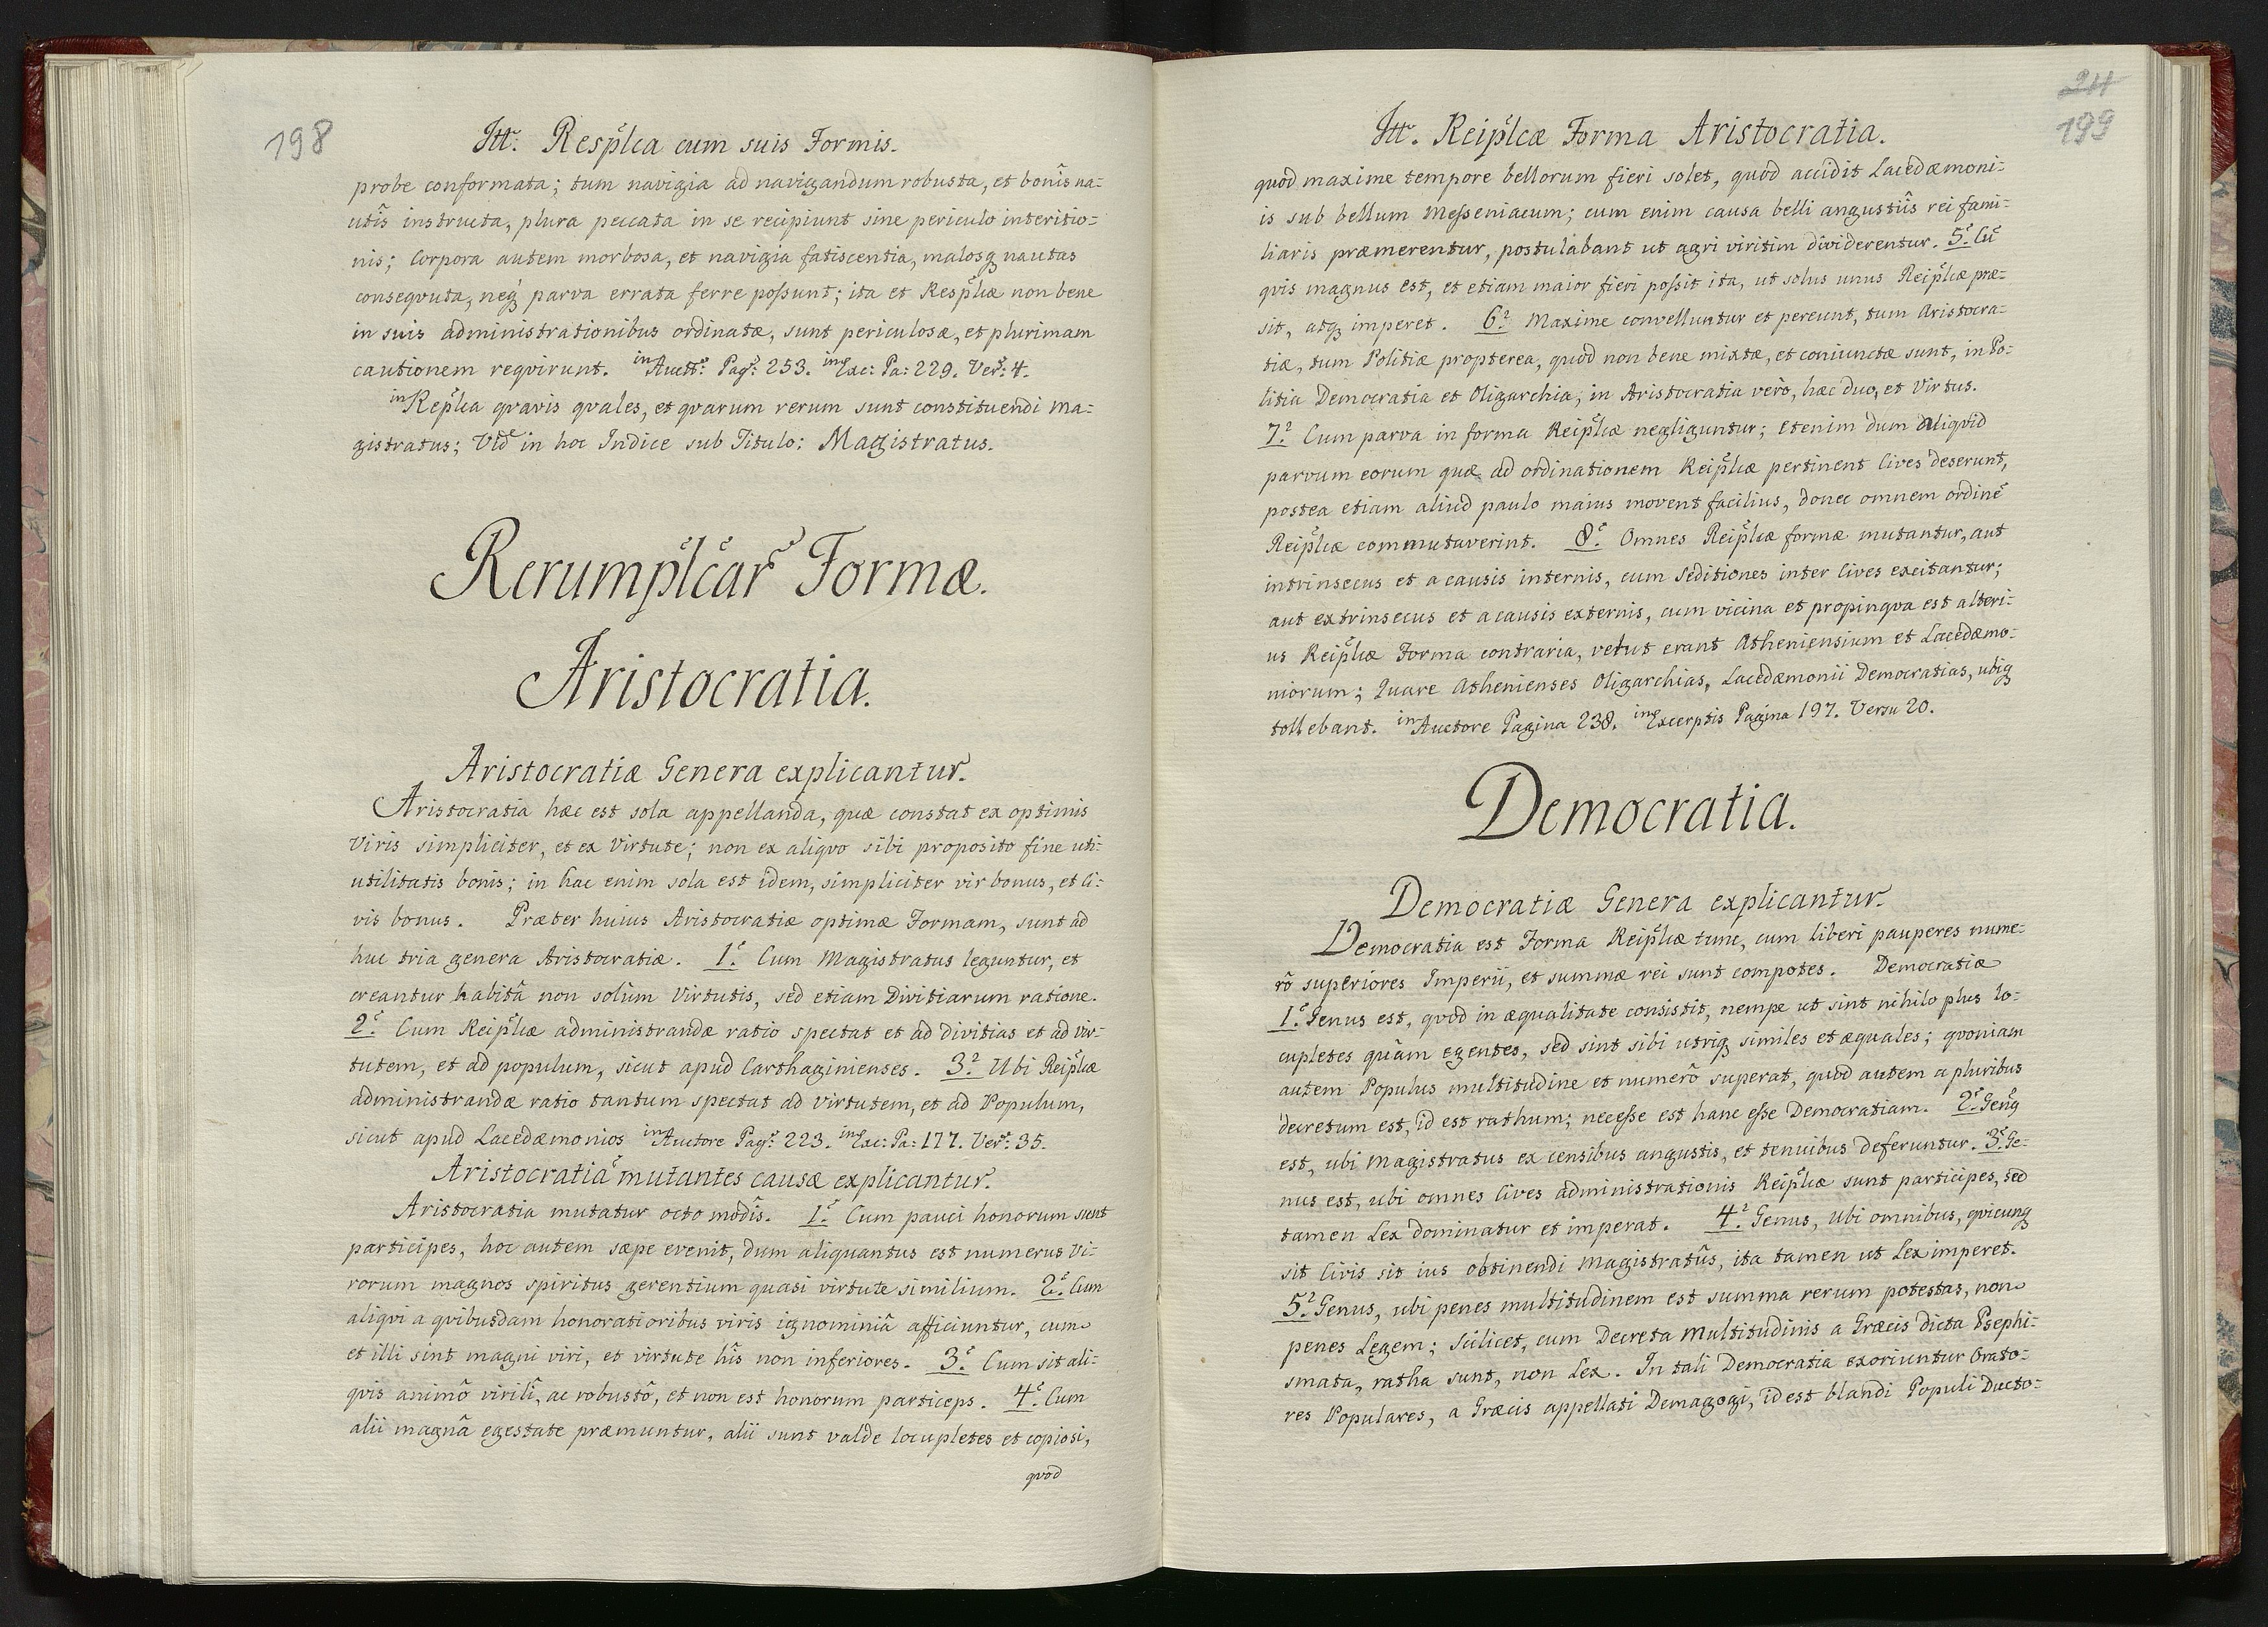 198
Itt. Resp̃lca cum suis Formis.
probe conformata; tum navigia ad navigandum robusta, et bonîs na=
utîs instructa, plura peccata in se recipiunt sine periculo interitio=
nis; Corpora autem morbosa, et navigia fatiscentia, malosq nautas
conseqvuta, neq parva errata ferre poſsunt; ita et Resp̃lcæ non bene
in suis administrationibus ordinatæ, sunt periculosæ, et plurimam
cautionem reqvirunt. in Auctr: Pag: 253. in Exc: Pa: 229. Ver: 4.
in Rep̃lca qvavis qvales, et qvarum rerum sunt constituendi Ma=
gistratus; Vide in hoc Indice sub Titulo: Magistratus.
Rerump̃lcar̃ Formæ.
Aristocratia.
Aristocratiæ Genera explicantur.
Aristocratia hæc est sola appellanda, quæ constat ex optimis
Viris simpliciter, et ex Virtute; non ex aliqvo sibi proposito fine uti=
utilitatis bonis; in hac enim sola est idem, simpliciter vir bonus, et Ci=
vis bonus. Præter huius Aristocratiæ optimæ Formam, sunt ad
huc tria genera Aristocratiæ. 1.̃ Cum Magistratus leguntur, et
creantur habitâ non solùm Virtutis, sed etiam Divitiarum ratione.
2.̃ Cum Reip̃lcæ administrandæ ratio spectat et ad divitias et ad vir=
tutem, et ad populum, sicut apud Carthaginienses. 3.̃ Ubi Reip̃lcæ
administrandæ ratio tantum spectat ad virtutem, et ad Populum,
sicut apud Lacedæmonios in Auctore Pag: 223. in Exc: Pa: 177. Ver: 35.
Aristocratiã mutantes causæ explicantur.
Aristocratia mutatur octo modîs. 1.̃ Cum pauci honorum sunt
participes, hoc autem sæpe evenit, dum aliquantus est numerus Vi=
rorum magnos spiritus gerentium quasi virtute similium. 2.̃ Cum
aliqvi a qvibusdam honoratioribus viris ignominiâ afficiuntur, cum
et illi sint magni viri, et virtute hîs non inferiores. 3.̃ Cum sit ali=
qvis animô virilî, ac robustô, et non est honorum particeps. 4.̃ Cum
alii magnâ egestate præmuntur, alii sunt valde locupletes et copiosi,
qvod
24
199
Itt. Reip̃lcæ Forma Aristocratia.
quod maxime tempore bellorum fieri solet, quod accidit Lacedæmoni=
is sub bellum Meſseniacum; cum enim causa belli angustiîs rei fami=
liaris præmerentur, postulabant ut agri viritim dividerentur. 5.̃ Cũ
qvis magnus est, et etiam maior fieri poſsit ita, ut solus unus Reip̃lcæ præ=
sit, atq imperet. 6.̃ Maxime convelluntur et pereunt, tum Aristocra=
tiæ, tum Politiæ propterea, quod non bene mixtæ, et coniunctæ sunt, in Po=
litia Democratia et Oligarchia; in Aristocratia verò, hæc duo, et Virtus.
7.̃ Cum parva in forma Reip̃lcæ negliguntur; etenim dum aliqvid
parvum eorum quæ ad ordinationem Reip̃lcæ pertinent Cives deserunt,
postea etiam aliud paulo maius movent facilius, donec omnem ordinẽ
Reip̃lcæ commutaverint. 8.̃ Omnes Reip̃lcæ formæ mutantur, aut
intrinsecus et a causis internis, cum Seditiones inter Cives excitantur;
aut extrinsecus et a causis externis, cum vicina et propinqva est alteri=
us Reip̃lcæ Forma contraria, velut erant Atheniensium et Lacedæmo=
niorum; Quare Athenienses Oligarchias, Lacedæmonii Democratias, ubiq
tollebant. in Auctore Pagina 238. in Excerptis Pagina 197. Versu 20.
Democratia.
Democratiæ Genera explicantur.
Democratia est Forma Reip̃lcæ tunc, cum liberi pauperes nume=
rô superiores Imperii, et summæ rei sunt compotes. Democratiæ
1.̃ Genus est, qvod in æqualitate consistit, nempe ut sint nihilo plus lo=
cupletes quàm egentes, sed sint sibi utriq similes et æquales; qvoniam
autem Populus multitudine et numerô superat, quod autem a pluribus
decretum est, id est rathum; neceſse est hanc eſse Democratiam. 2.̃ Geng
est, ubi Magistratus ex censibus angustis, et tenuibus deferuntur. 3.̃ Ge=
nus est, ubi omnes Cives administrationis Reip̃lcæ sunt participes, sed
tamen Lex dominatur et imperat. 4.̃ Genus, ubi omnibus, qvicunq
sit Civis sit ius obtinendi Magistratûs, ita tamen ut Lex imperet.
5.̃ Genus, ubi penes multitudinem est summa rerum potestas, non
penes Legem; scilicet, cum Decreta Multitudinis a Græcis dicta Psephi=
smata, ratha sunt, non Lex. In tali Democratia exoriuntur Orato=
res Populares, a Græcis appellati Demagogi, id est blandi Populi Ducto=